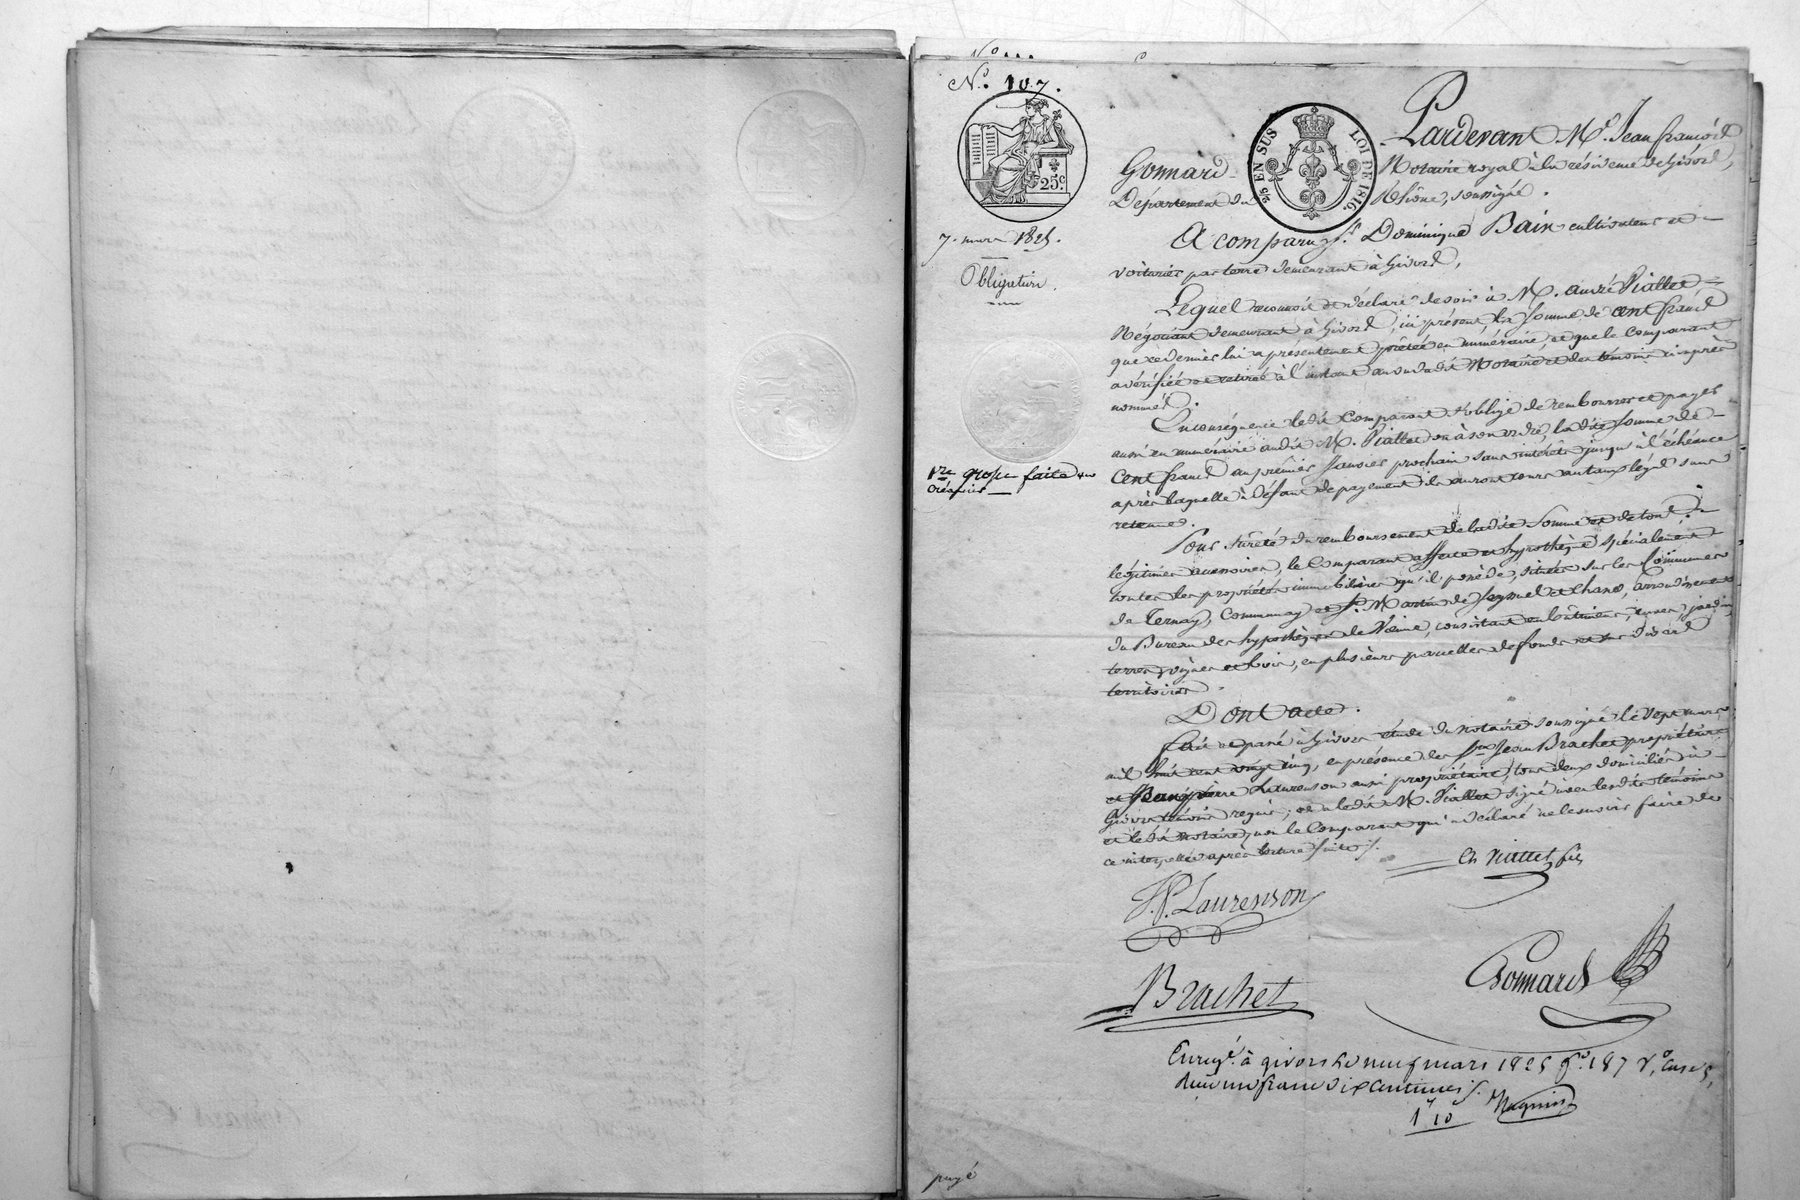 N.º 107.
25 c.
2/5 EN SUS
LOI DE 1816.
7. mars 1825.
Obligation.
1re grosse faite au
créancier
Pardevant Me. Jean françois
Gonnard Notaire royal à la résidence de Givors,
Département du Rhône, soussigné.
A comparu Sr. Dominique Bain cultivateur et
voiturier par terre demeurant à Givors,
Lequel reconnoit et déclare devoir à M. André Viallet
Négociant demeurant à Givors, ici présent, la somme de cent francs
que ce dernier lui a présentement prêtée en numéraire, et que le comparant
a vérifiée et retirée à l'instant au vu dudit Notaire et des témoins ci après
nommés.
En conséquence ledit comparant s'oblige de rembourser et payer
aussi en numéraire audit M. Viallet ou à son ordre, la dite somme de
cent francs au premier Janvier prochain sans intérêts jusqu'à l'échéance
après laquelle à défaut de payement ils auront cours au taux légal sans
retenue.
Pour sûreté du remboursement de ladite somme et de tous
légitimes accessoires, le Comparant affecte et hypothèque spécialement
toutes les propriétés immobilières qu'il possède, situées sur les Communes
de Ternay, Communay et St. Martin de Seyssuel et Chane, arrondissement
du Bureau des hypothèques de Vienne, consistant en bâtiments, cours, jardin
terres, vignes et bois, en plusieurs parcelles de fonds et sur divers
territoires.
Dont acte.
fait et passé à Givors étude du notaire soussigné le sept mars
mil huit cent vingt cinq, en présence des Srs Jean Brachet propriétaire
et Jean pierre Laurenson aussi propriétaire, tous deux domiciliés à
Givors témoins requis; et a ledit M. Viallet signé avec lesdits témoins
et ledit notaire, non le Comparant qui a déclaré ne le savoir faire de
ce interpellé après lecture faite /.
Viallet fils
J. P. Laurenson
Brachet
Gonnard
Enregé. à givors le neuf mars 1825 fo. 187 Vo, Case 5,
reçu un franc dix centimes /.
1f 10
Magnin
payé